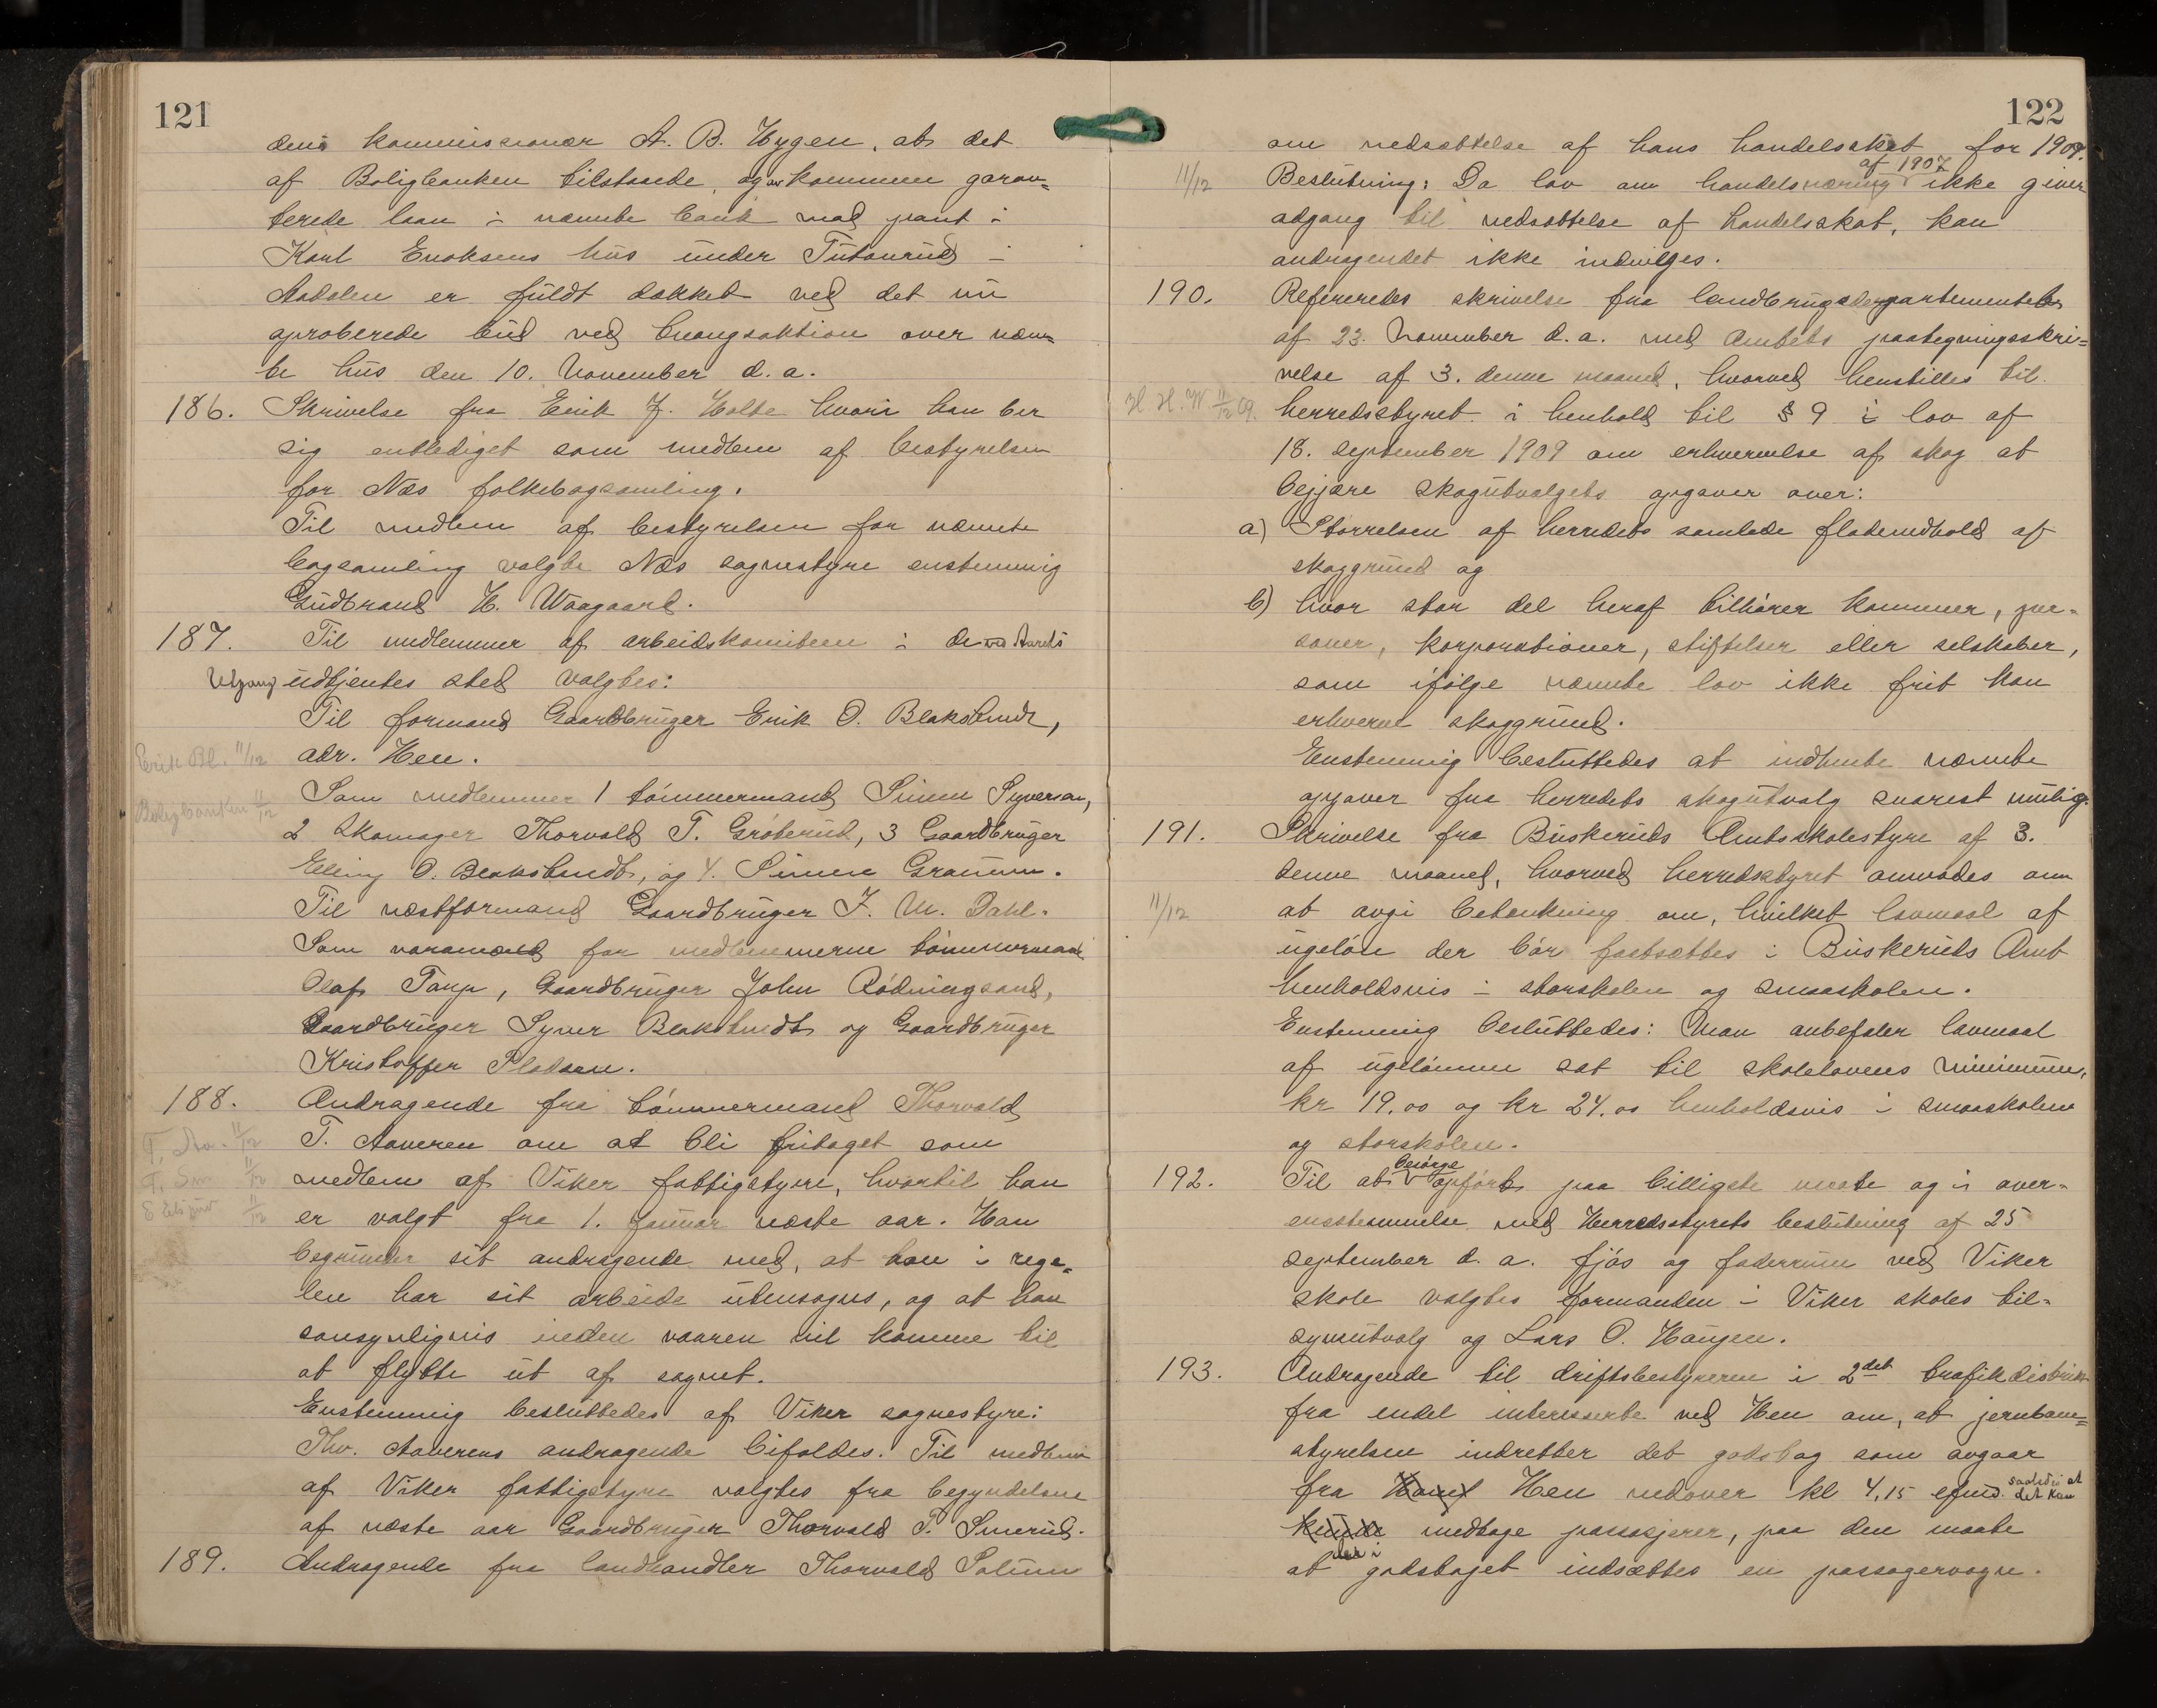 121
dens kommissionær A. B. Hygen, at det
af Boligbanken tilstaaede, og av kommunen garan-
terede laan i nævnte bank mod pant i
Karl Enoksens hus under Tutanrud i
Aadalen er fuldt dækket ved det nu
aproberede bud ved tvangsaktion over nævn-
te hus den 10. November d. a.
186. Skrivelse fra Erik J. Holte hvori han ber
sig entlediget som medlem af bestyrelsen
for Næs folkebogsamling.
Til medlem af bestyrelsen for nævnte
bogsamling valgte Næs sognestyre enstemmig
Gudbrand H. Waagaard.
187. Til medlemmer af arbeidskomiteen i de ved Aarets
Utgang udtjentes sted valgtes:
Til formand Gaardbruger Erik O. Blakstvedt,
Erik Bl. 11/12 adr. Hen.
Boligbanken 11/12 Som medlemmer 1 tømmermand Simen Syversen,
2 Skomager Thorvald T. Grøterud, 3 Gaardbruger
Elling O. Blakstvedt, og 4. Simen Granum.
Til næstformand Gaardbruger J. M. Dahl.
Som varamænd for medlemmerne tømmermand
Olaf Torp, Gaardbruger John Rødningsand,
Gaardbruger Syver Blakstvedt og Gaardbruger
Kristoffer Pladsen.
188. Andragende fra tømmermand Thorvald
T. Aa. 11/12 T. Aaveren om at bli fritaget som
T. Sm 11/12 medlem af Viker fattigstyre, hvortil han
11/12 er valgt fra 1. Januar næste aar. Han
begrunder sit andragende med, at han i rege-
len har sit arbeide utensogns, og at han
sansynligvis inden vaaren vil komme til
at flytte ut af sognet.
Enstemmig besluttedes af Viker sognestyre:
Thv. Aaverens andragende bifaldes. Til medlem
af Viker fattigstyre valgtes fra begyndelsen
af næste aar Gaardbruger Thorvald T. Smerud.
189. Andragende fra landhandler Thorvald Solum
122
om nedsættelse af hans handelsskat for 1909.
af 1907
11/12 Beslutning: Da lov om handelsnæring ikke giver
adgang til nedsættelse af handelsskat, kan
andragendet ikke indvilges.
190. Refereredes skrivelse fra landbrugsdepartementet
af 23. November d. a. med Amtets paategningsskri-
velse af 3. denne maaned, hvorved henstilles til
H. H. W 11/12 09. herredsstyret i henhold til § 9 i lov af
18. september 1909 om erhvervelse af skog at
begjære skogutvalgets opgaver over:
a) Størrelsen af herredets samlede fladeindhold af
skoggrund og
b) hvor stor del heraf tilhører kommuner, per-
soner, korporationer, stiftelser eller selskaber,
som ifølge nævnte lov ikke frit kan
erhverve skoggrund.
Enstemmig besluttedes at indhente nævnte
opgaver fra herredets skogutvalg snarest mulig.
191. Skrivelse fra Buskeruds Amtsskolestyre af 3.
denne maaned, hvorved herredsstyret anmodes om
11/12 at avgi betænkning om, hvilket lavmaal af
ugeløn der bør fastsættes i Buskeruds Amt
henholdsvis i storskolen og smaaskolen.
Enstemmig besluttedes: Man anbefaler lavmaal
af ugelønnen sat til skolelovens minimum,
kr 19.00 og kr 24.00 henholdsvis i smaaskolen
og storskolen.
besørge
192. Til at opført paa billigste maate og i over-
ensstemmelse med Herredsstyrets beslutning af 25
september d. a. fjøs og foderrum ved Viker
skole valgtes formanden i Viker skoles til-
synsutvalg og Lars O. Haugen.
193. Andragende til driftsbestyreren i 2det trafikdistrikt
fra endel interesserte ved Hen om, at jernbane-
styrelsen indretter det godstog som avgaar
fra Hen nedover kl 4,15 efmd. saaledes at det kan
medtage passasjerer, paa den maate
der i
at godstoget indsættes en passagervogn.